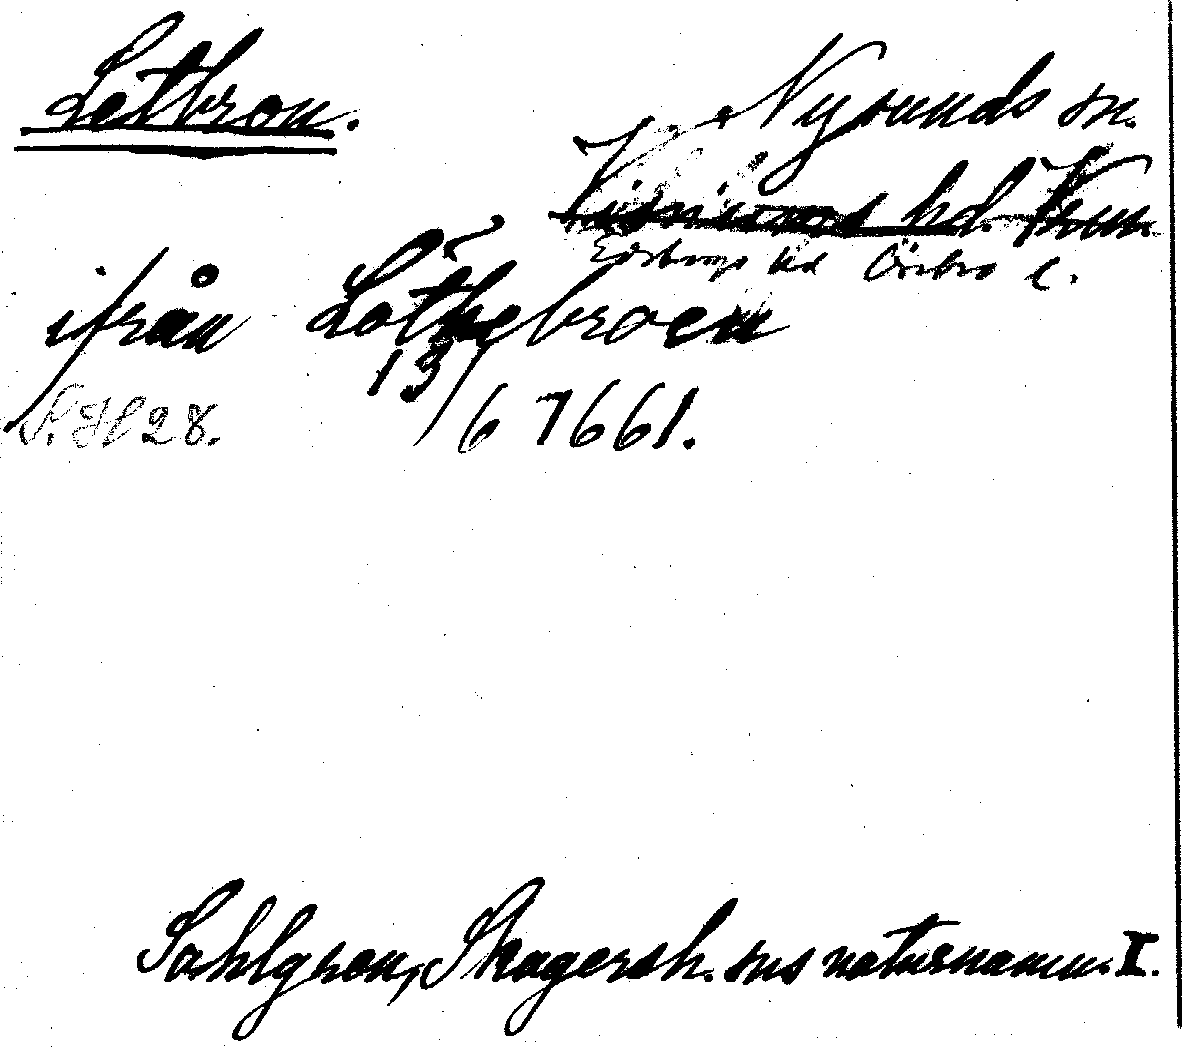 Letbron.
Nysunds sn.
Visnums hd. Vrm.
Edsbergs hd Örebro l.
ifrån Löthebroen
13/6 1661.
S. H 28.
Sahlgren, Skagersh. sns naturnamn. I.